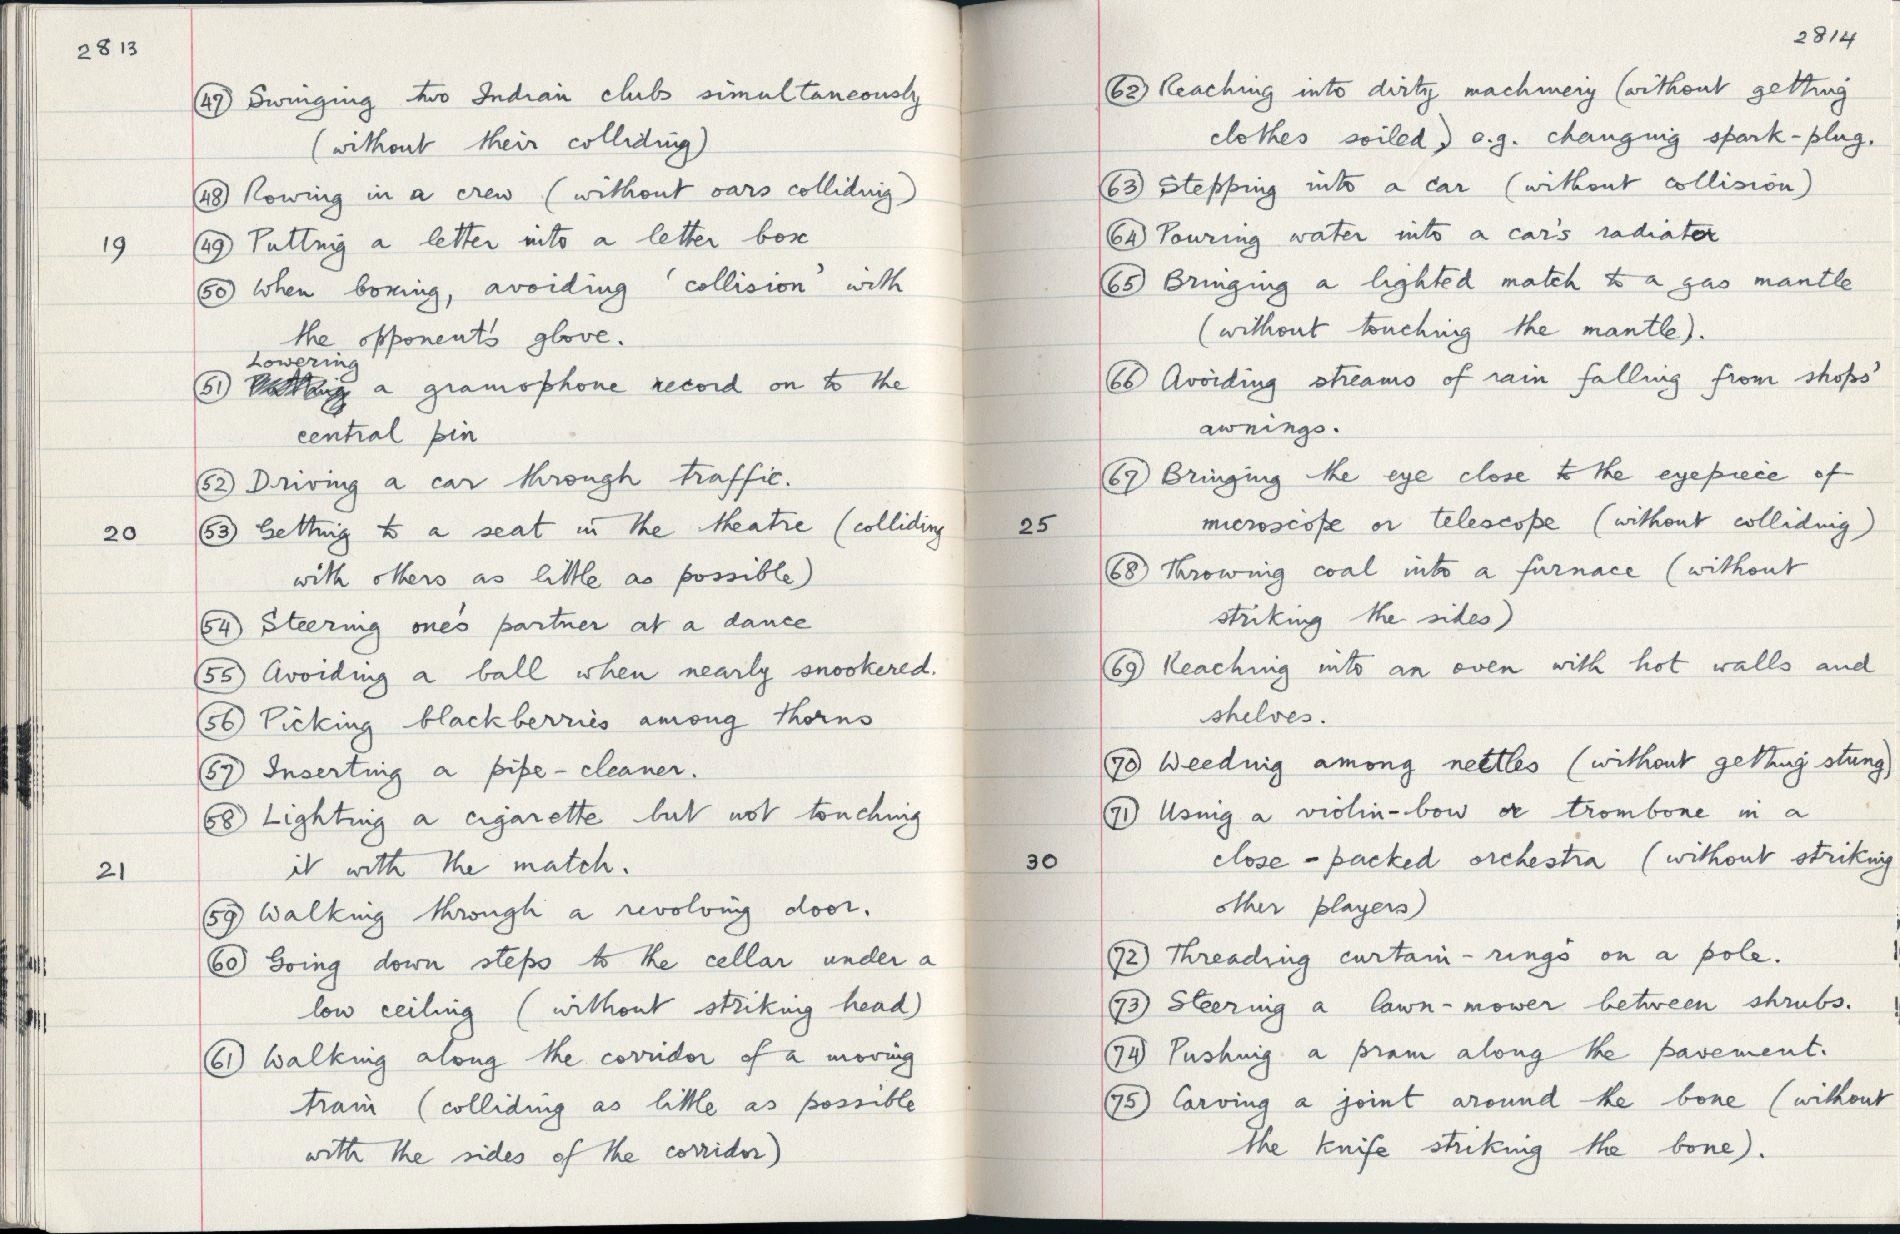 2813
㊼ Swinging two Indian clubs simultaneously
(without their colliding)
㊽ Rowing in a crew (without oars colliding)
19 ㊾ Putting a letter into a letter box
㊿ When boxing, avoiding 'collision' with
the opponent's glove.
Lowering
(51) a gramophone record on to the
central pin
(52) Driving a car through traffic.
20 (53) Getting to a seat in the theatre (colliding
with others as little as possible)
(54) Steering one's partner at a dance
(55) Avoiding a ball when nearly snookered.
(56) Picking blackberries among thorns
(57) Inserting a pipe-cleaner.
(58) Lighting a cigarette but not touching
21 it with the match.
(59) Walking through a revolving door.
(60) Going down steps to the cellar under a
low ceiling (without striking head)
(61) Walking along the corridor of a moving
train (colliding as little as possible
with the sides of the corridor)
2814
(62) Reaching into dirty machinery (without getting
clothes soiled) e.g. changing spark-plug.
(63) Stepping into a car (without collision)
(64) Pouring water into a car's radiator
(65) Bringing a lighted match to a gas mantle
(without touching the mantle).
(66) Avoiding streams of rain falling from shops'
awnings.
(67) Bringing the eye close to the eyepiece of
25 microscope or telescope (without colliding)
(68) Throwing coal into a furnace (without
striking the sides)
(69) Reaching into an oven with hot walls and
shelves.
(70) Weeding among nettles (without getting stung)
(71) Using a violin-bow or trombone in a
30 close-packed orchestra (without striking
other players)
(72) Threading curtain-rings on a pole.
(73) Steering a lawn-mower between shrubs.
(74) Pushing a pram along the pavement.
(75) Carving a joint around the bone (without
the knife striking the bone).